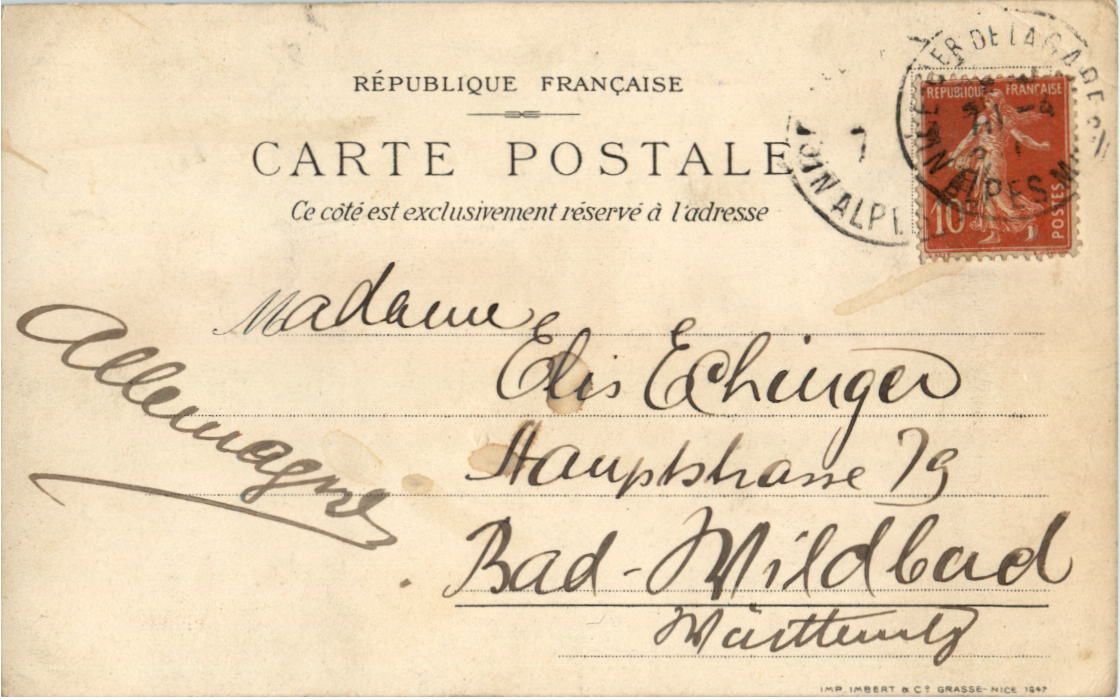 RÉPUBLIQUE FRANÇAISE
CARTE POSTALE
Ce côté est exclusivement réservé à l'adresse
RÉPUBLIQUE FRANÇAISE
10
POSTES
DE LA GARE
ALPES M
7
ALPES
Madame
Elis Echinger
Allemagne
Hauptstrasse 79
Bad-Wildbad
Württembg
IMP. IMBERT & Cº GRASSE-NICE 1847